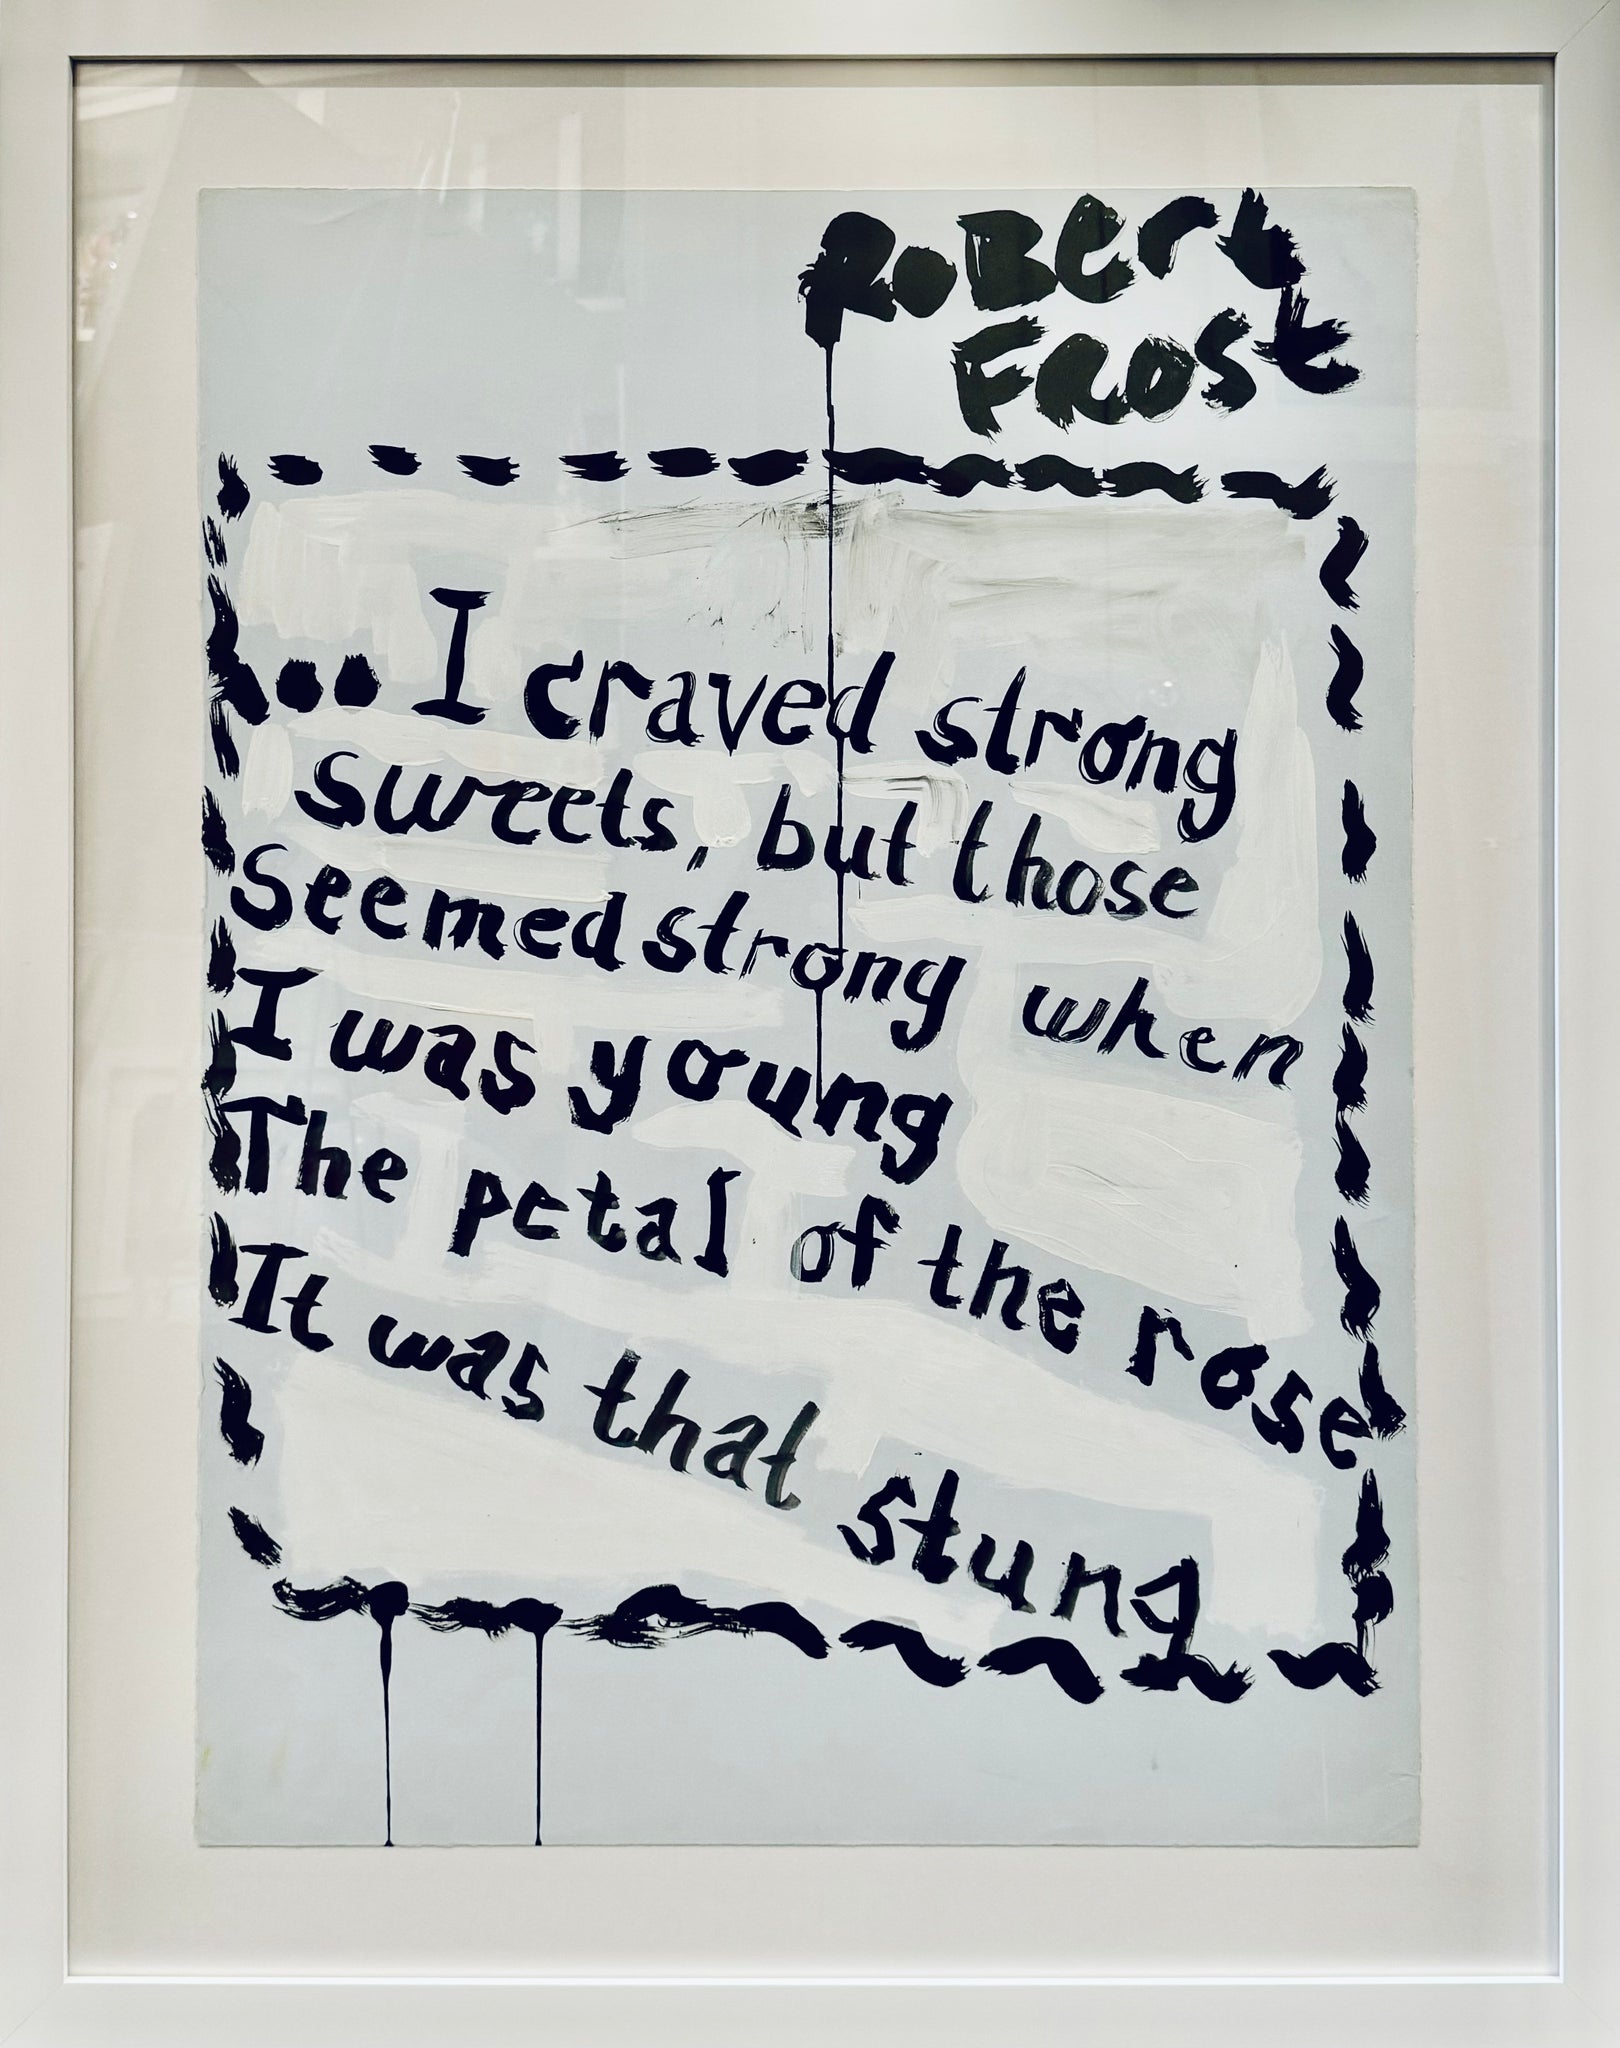 RoBert
FRost
... I craved strong
sweets, but those
Seemed strong when
I was young
The petal of the rose
It was that stung